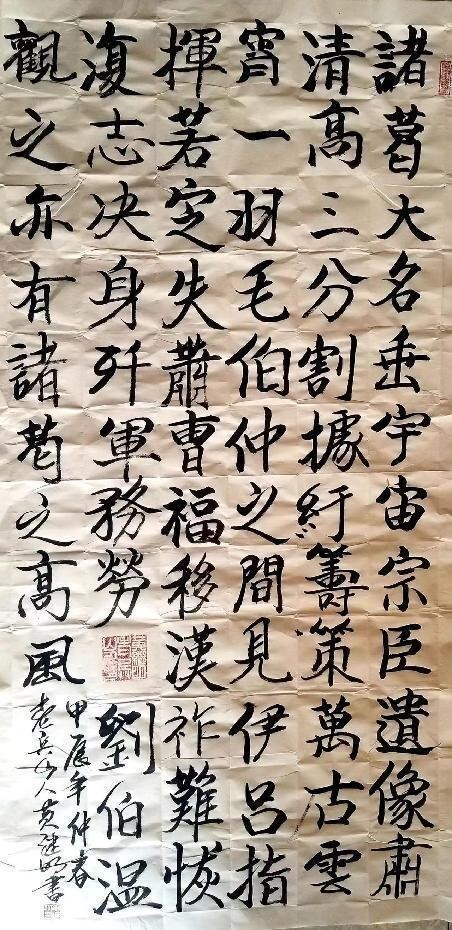 諸葛大名垂宇宙宗臣遺像肅
清高三分割據紆籌策萬古雲
宵一羽毛伯仲之間見伊呂指
揮若定失蕭曹福移漢祚難恢
復志决身歼軍務勞劉伯温
觀之亦有諸葛之高風
甲辰年仲春
人黄書